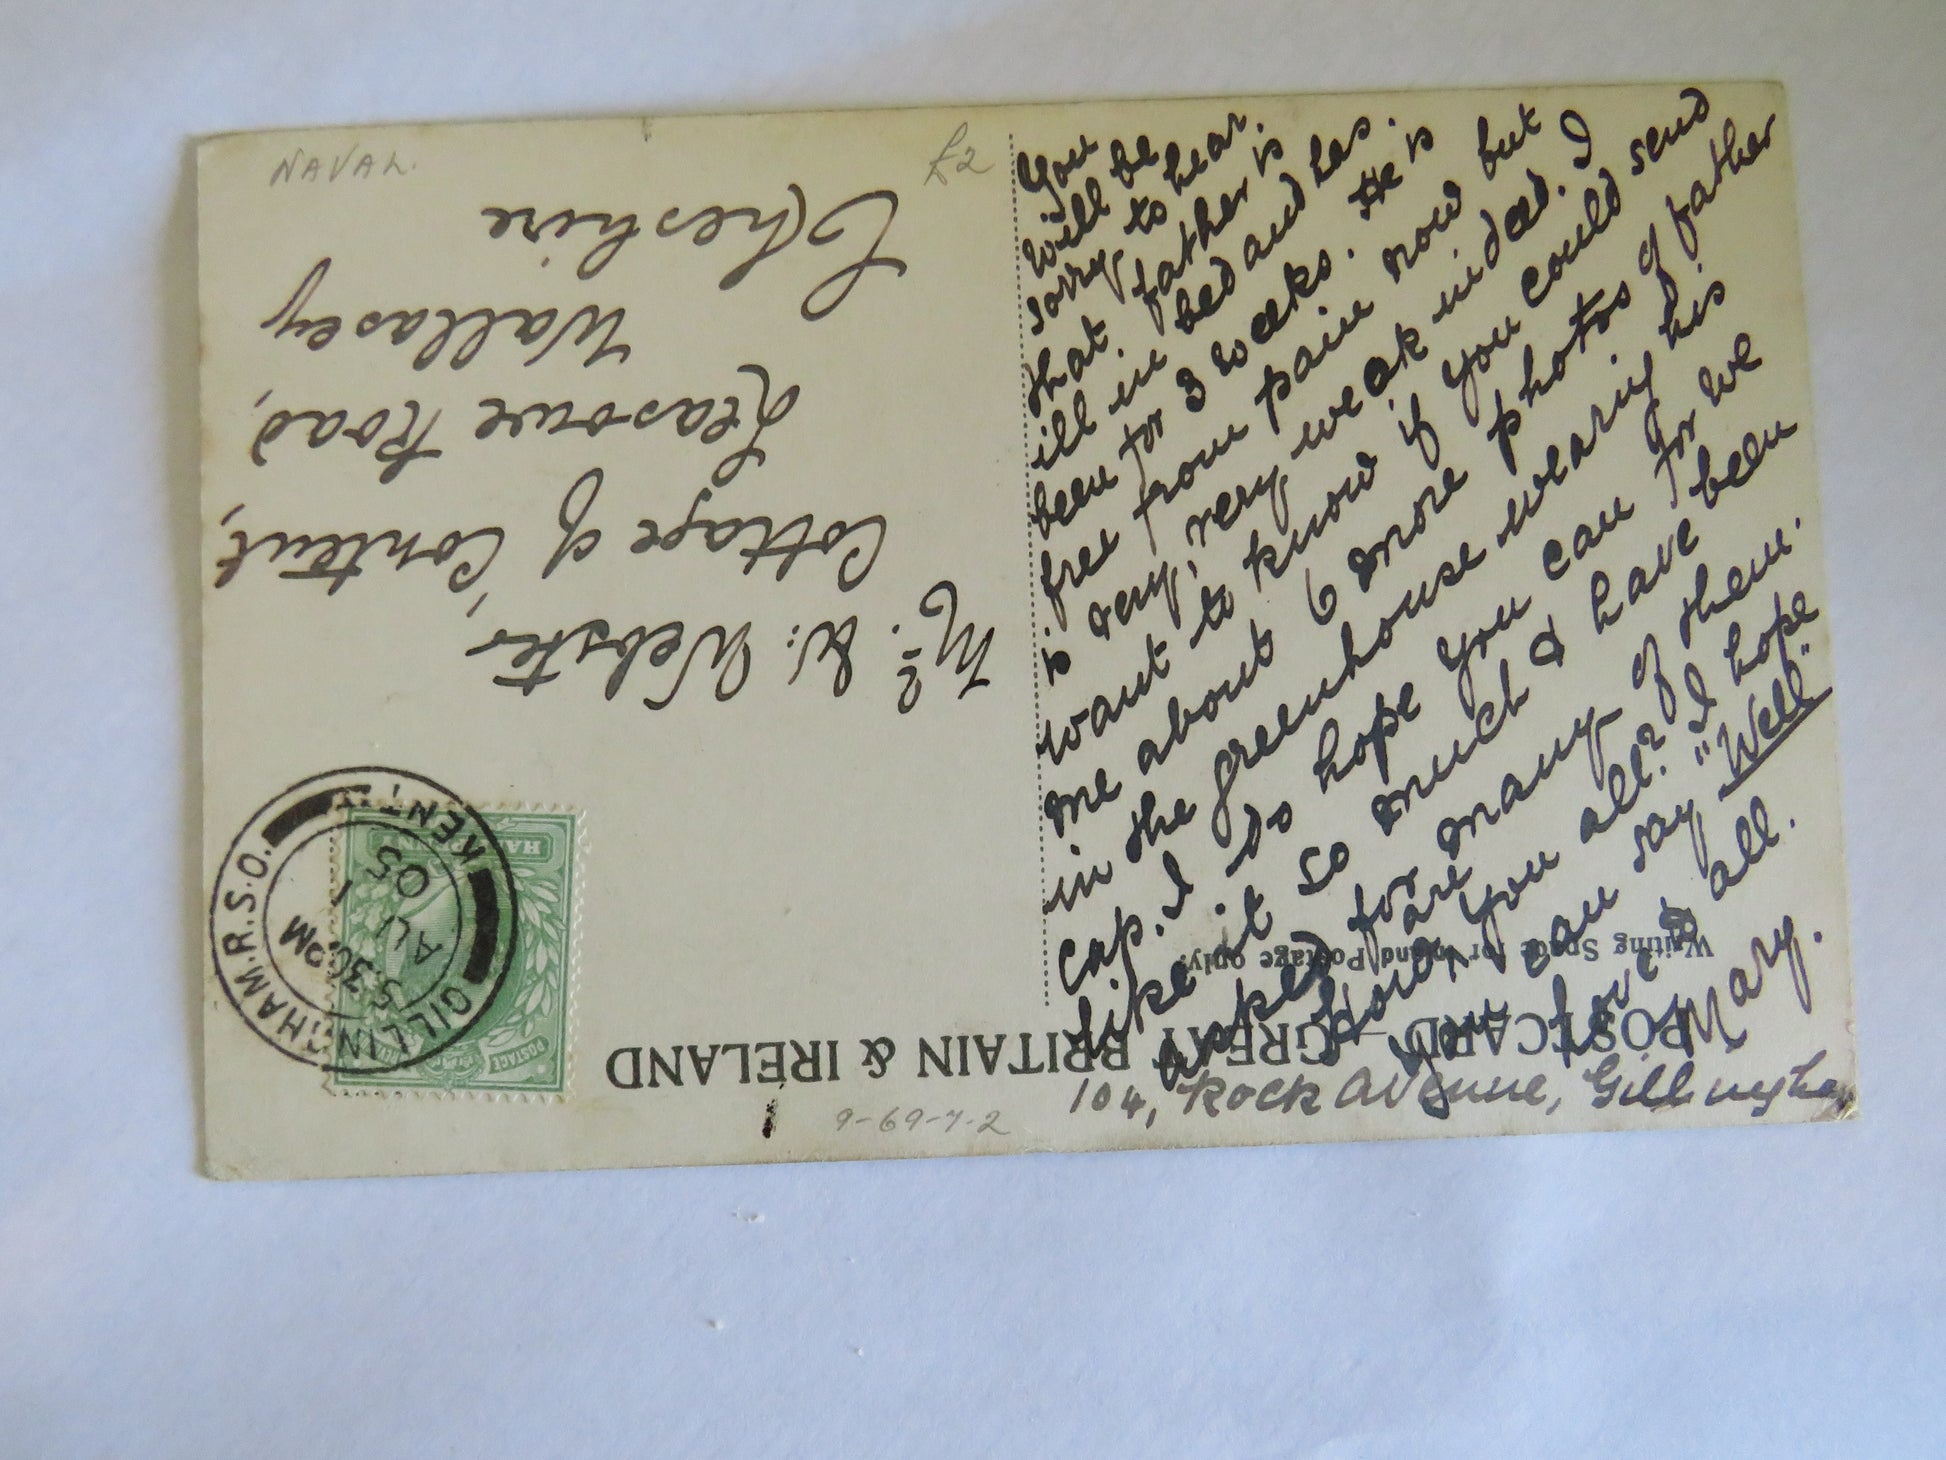 NAVAL.
£2
You
will be
sorry to hear.
that. father is
ill in bed and has.
been for 3 weeks. He is
free from pain now but
is very, very weak indeed. I
want to know if you could send
me about 6 more photos of father
in the greenhouse wearing his
cap. I do hope you can for we
like it so much & have been
asked for many of them.
How are you all? I hope
you can say "Well".
love to all.
Mary.
104, Rock Avenue, Gillingham
POSTCARD – GREAT BRITAIN & IRELAND
Writing Space for Inland Postage only.
Mrs W. Webster
'Cottage of Content,
Leasowe Road,
Wallasey
Cheshire
GILLINGHAM.R.S.O.
KENT
5.30PM
AU 1
05
POSTAGE
HALFPENNY
9-69-7-2